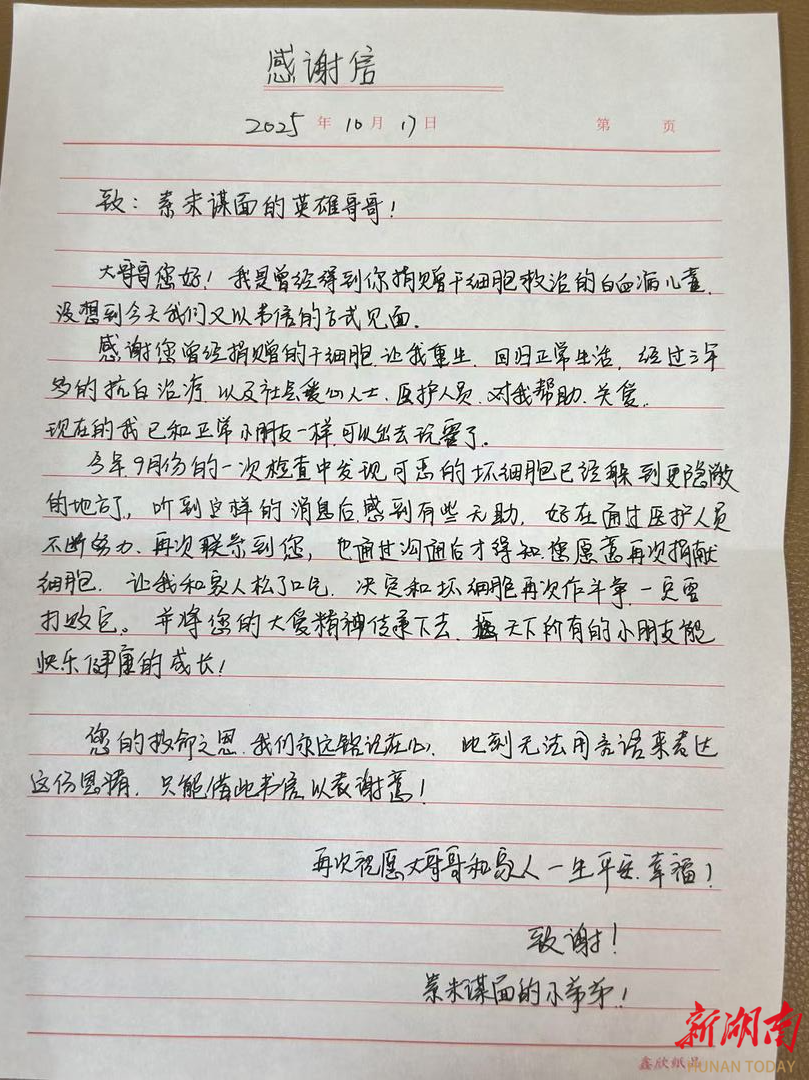 感谢信
2025年10月17日 第 页
致：素未谋面的英雄哥哥！
大哥哥您好！我是曾经得到你捐赠干细胞救治的白血病儿童，
没想到今天我们又以书信的方式见面。
感谢您曾经捐赠的干细胞，让我重生，回归正常生活，经过三年
多的抗白治疗，以及社会爱心人士、医护人员、对我帮助、关爱，
现在的我已和正常小朋友一样可以出去玩耍了。
今年9月份的一次检查中发现可恶的坏细胞已经躲到更隐敝
的地方了，听到这样的消息后感到有些无助，好在通过医护人员
不断努力，再次联系到您，也通过沟通后才得知您愿意再次捐献
细胞，让我和家人松了口气，决定和坏细胞再次作斗争，一定要
打败它。并将您的大爱精神传承下去，天下所有的小朋友能
快乐健康的成长！
您的救命之恩，我们永远铭记在心，此刻无法用言语来表达
这份恩情，只能借此书信以表谢意！
再次祝愿大哥哥和家人一生平安、幸福！
致谢！
素未谋面的小弟弟！
新湖南
鑫欣纸品
HUNAN TODAY